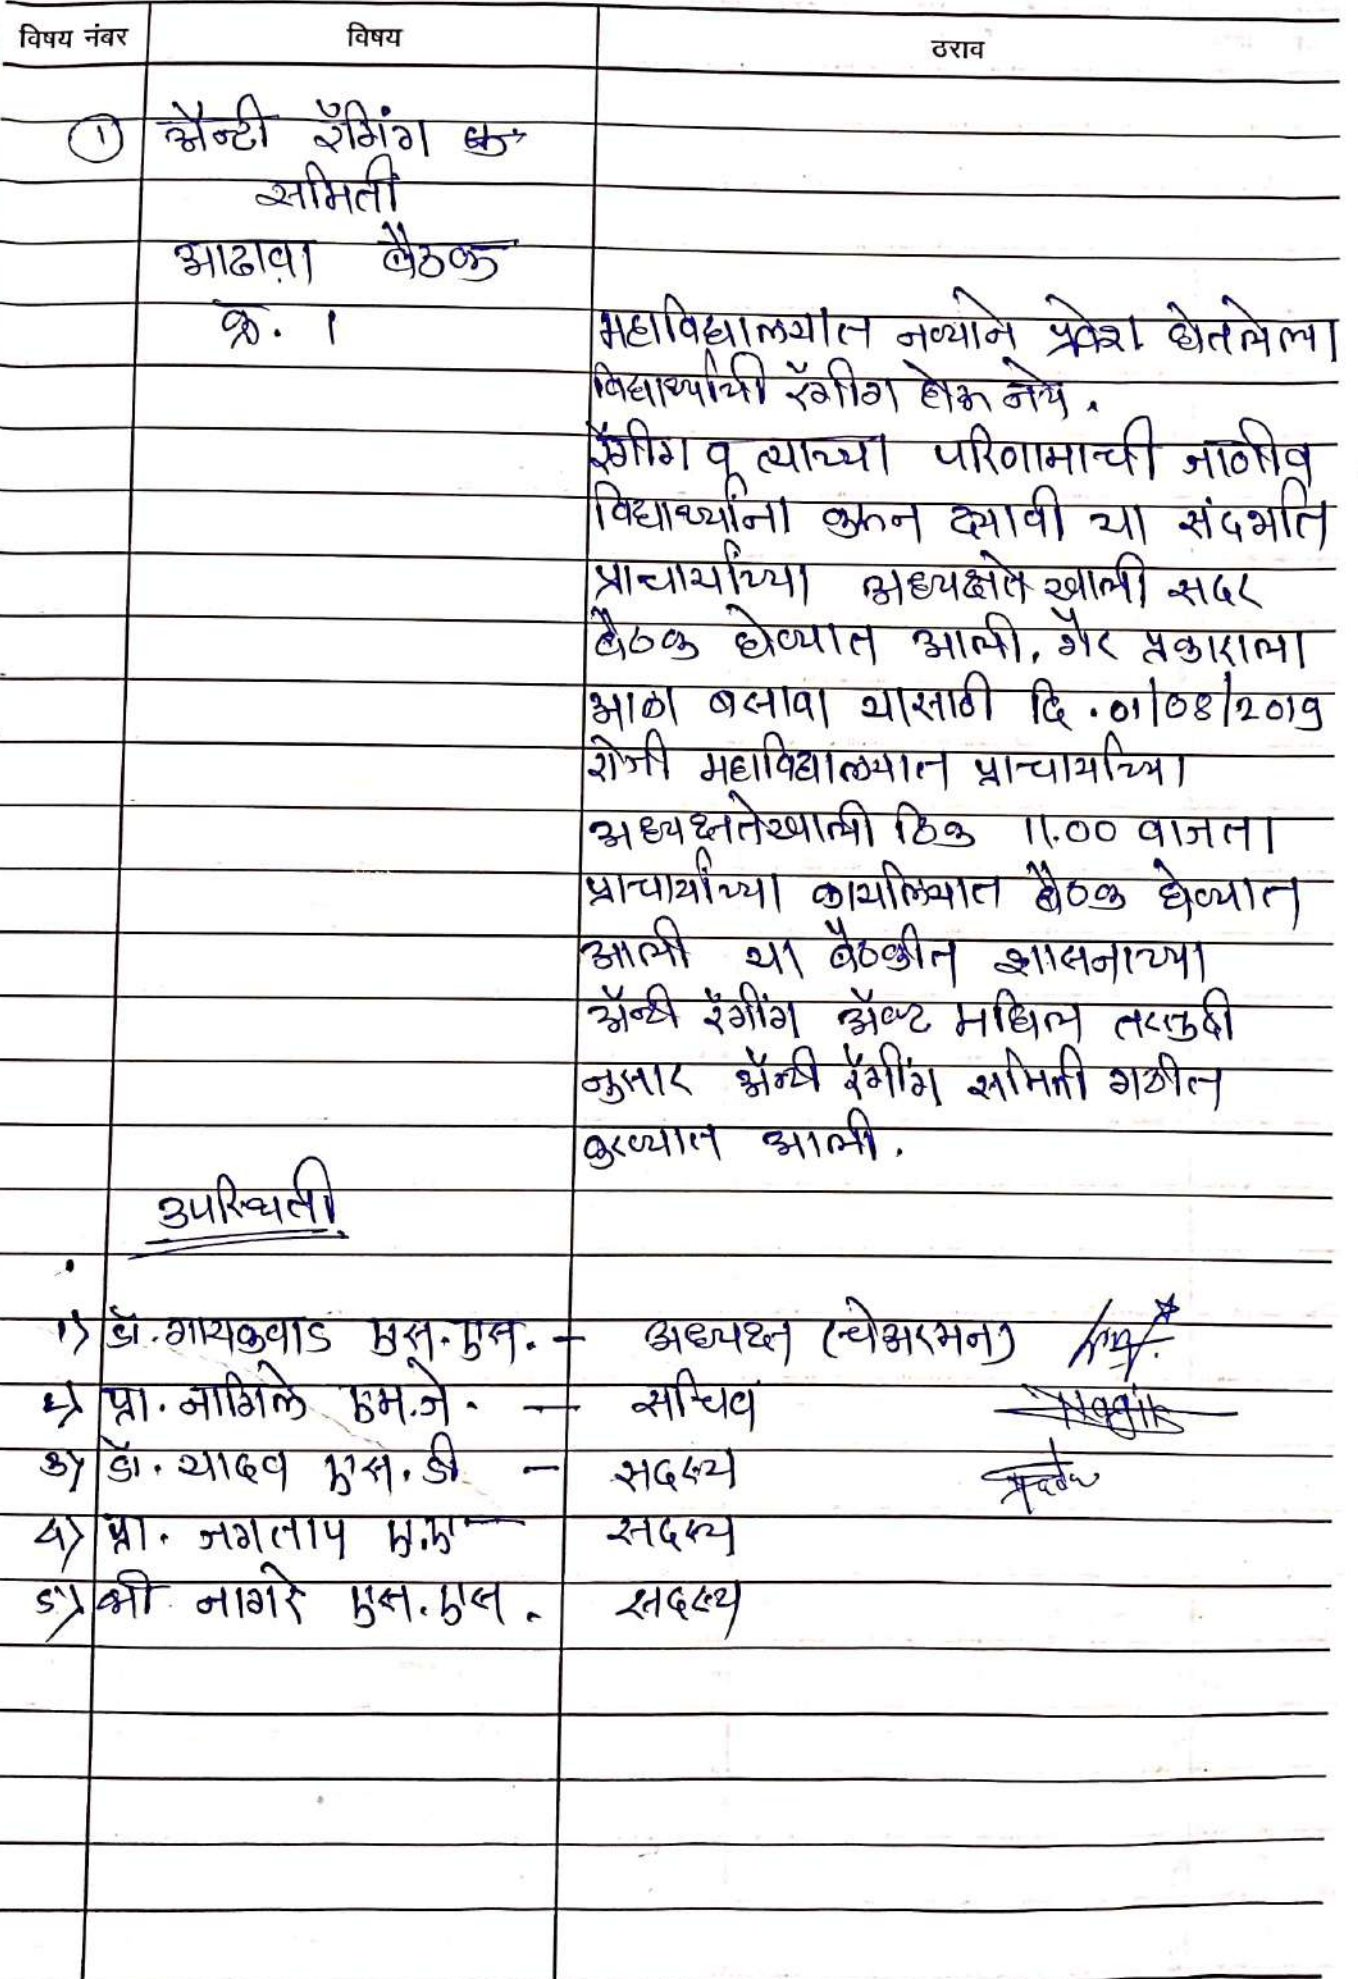 विषय नंबर विषय ठराव
① अॅन्टी रॅगिंग
समिती
आढावा बैठक
क्र. 1
महाविद्यालयात नव्याने प्रवेश घेतलेल्या
विद्यार्थ्यांची रॅगींग होऊ नये.
रॅगींग व त्याच्या परिणामाची जाणीव
विद्यार्थ्यांना करून द्यावी या संदर्भात
प्राचार्यांच्या अध्यक्षते खाली सदर
बैठक घेण्यात आली. गैर प्रकाराला
आळा बसावा यासाठी दि. 01/08/2019
रोजी महाविद्यालयात प्राचार्यांच्या
अध्यक्षतेखाली ठिक 11.00 वाजता
प्राचार्यांच्या कार्यालयात बैठक घेण्यात
आली या बैठकीत शासनाच्या
अॅन्टी रॅगींग अॅक्ट मधिल तरतुदी
नुसार अॅन्टी रॅगींग समिती गठीत
करण्यात आली.
उपस्थिती
१) डॉ. गायकवाड एस. एस. - अध्यक्ष (चेअरमन)
२) प्रा. नागिले एम. जे. - सचिव
३) डॉ. यादव एस. डी - सदस्य
४) प्रा. जगताप ए.ए - सदस्य
५) श्री नागरे एस. एस. सदस्य